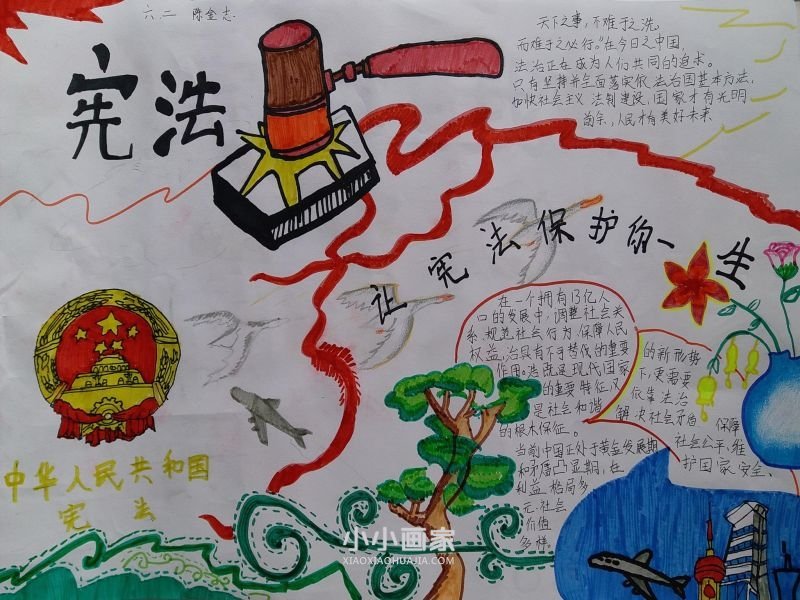 六.二 陈金志
宪法
天下之事,不难于之洗。
而难于之必行。"在今日之中国,
法治正在成为人们共同的追求。
只有坚持并全面落实依法治国基本方法,
加快社会主义法制建设,国家才有光明
前余,人民才有美好未来
让宪法保护你一生
在一个拥有13亿人
口的发展中,调整社会关
系规范社会行为保障人民
权益,治具有不于替伐的重要
作用。法既是现代国家
的重要特征,又
是社会和谐
的根木保证。
当前中国正处于黄益发展期
和矛盾凸显期,在
利益格局多
元.社会
价值
多样
的新形势
下,更需要
依靠法治
解决社会矛盾保障
社会公平,维
护国家安全、
中华人民共和国
宪法
小小画家
XIAOXIAOHUAJIA.COM